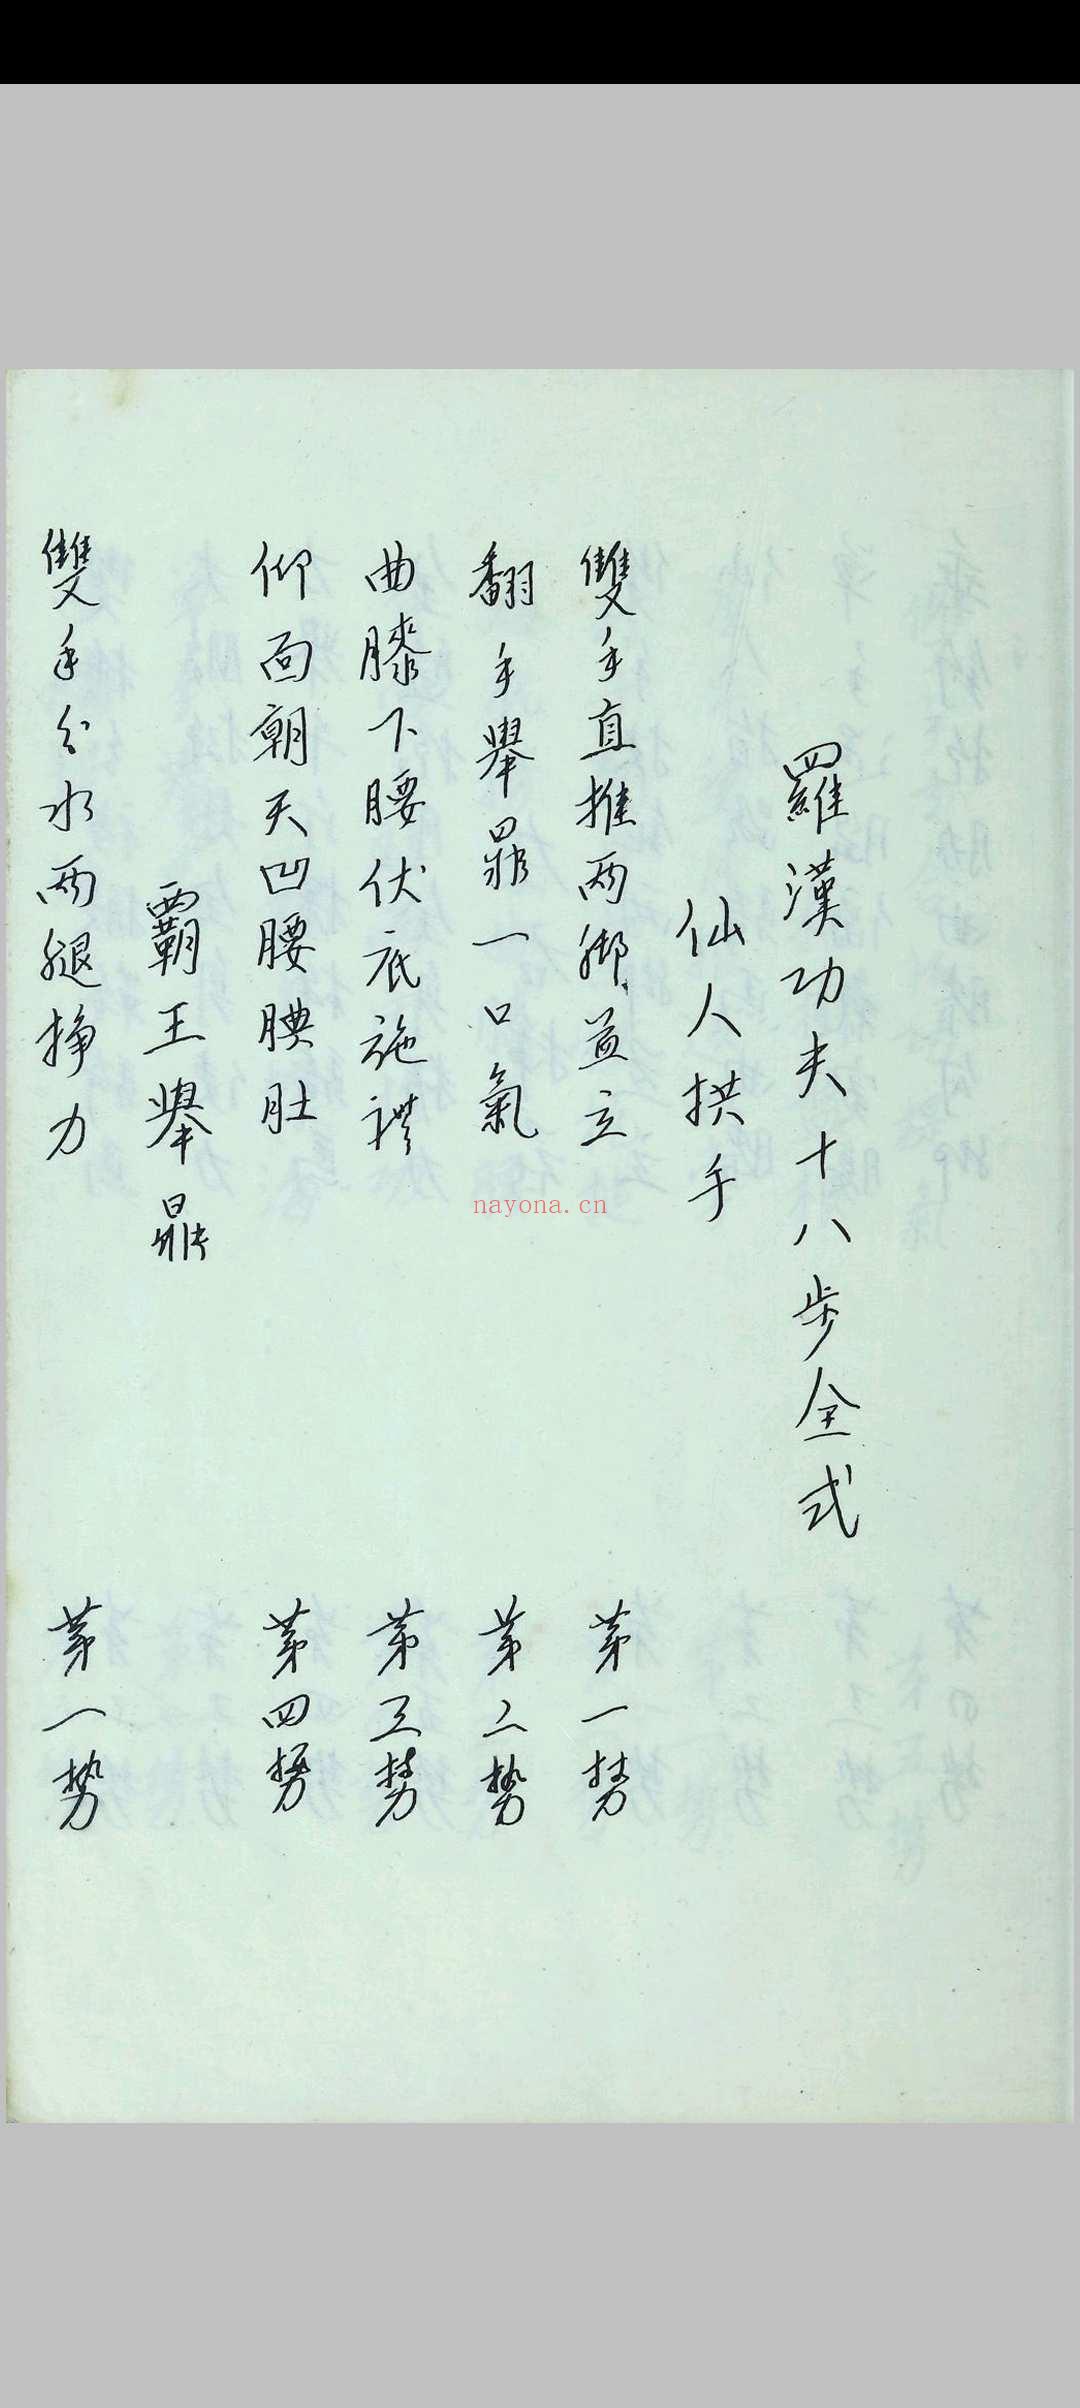 羅漢功夫十八步全式
仙人拱手
雙手直推两脚並立 第一势
翻手舉鼎一口氣 第二势
曲膝下腰伏底施禮 第三势
仰面朝天凹腰腆肚 第四势
霸王舉鼎
雙手分水两腿挣力 第一势
nayona.cn